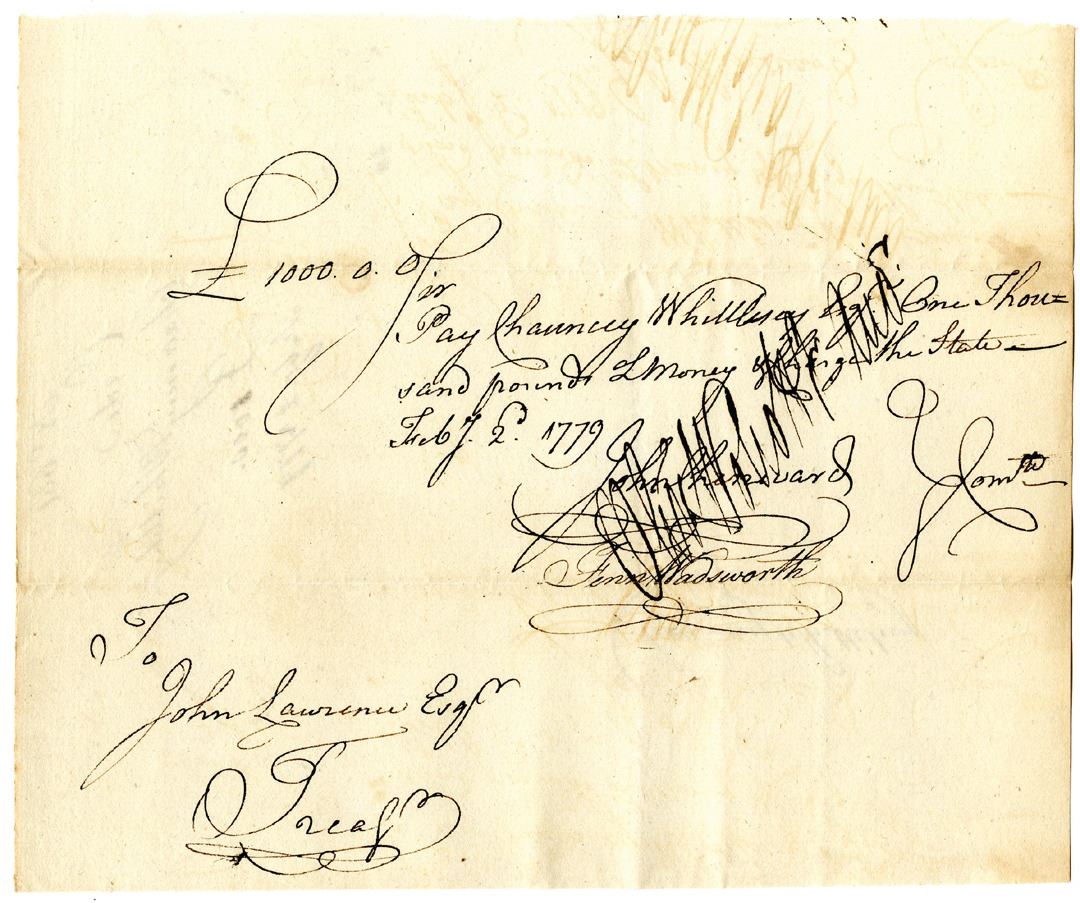 £ 1000. 0. 0
Sir
Pay Chauncey Whittlesey Esqr. One Thou=
sand pounds LMoney & Charge the State
Feby. 2d. 1779
John Chenward
Fenn Wadsworth
Comtte
To
John Lawrence Esqr
Treasr